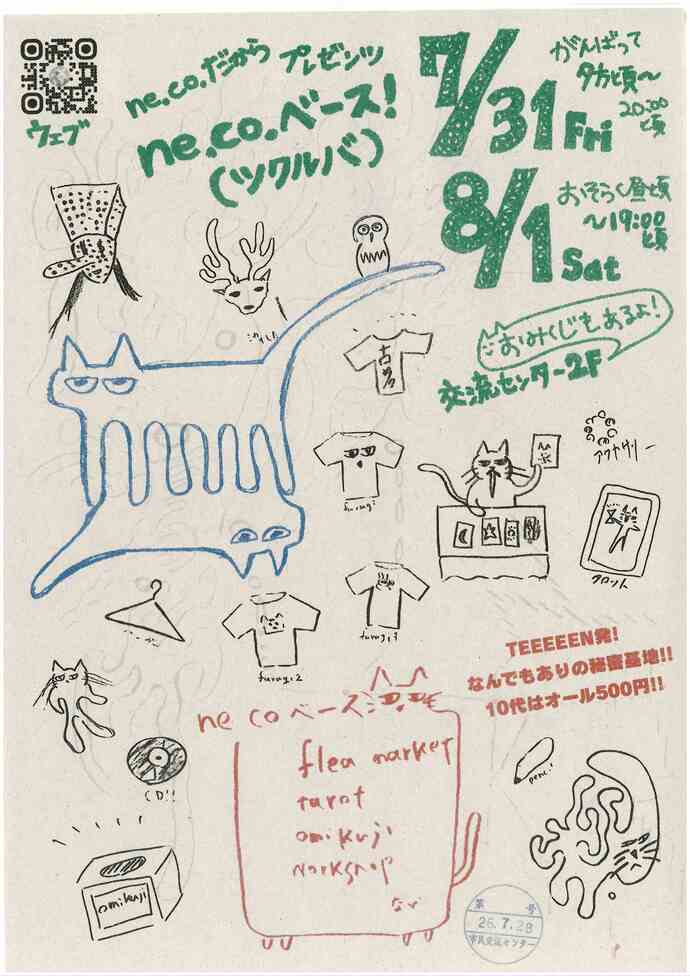 ウェブ
ne.co.だから プレゼンツ
ne.co.ベース!
(ツクルバ)
7/31 Fri
がんばって
夕方頃〜
20:00
頃
8/1 Sat
おそらく昼頃
〜19:00
頃
おみくじもあるよ!
交流センター2F
古着
furugi
アクセサリー
タロット
furugi2
furugi3
TEEEEEN発!
なんでもありの秘密基地!!
10代はオール500円!!
CD!!
pen!!
omikuji
ne coベース
flea market
tarot
omikuji
workshop
など
第 号
26.7.28
市民交流センター